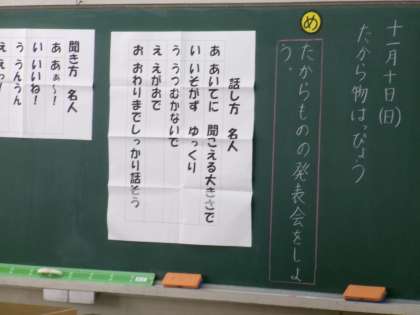 十一月十日(日)
たから物はっぴょう
め
たからものの発表会をしよ
う。
話し方 名人
あ あいてに 聞こえる大きさで
い いそがず ゆっくり
う うつむかないで
え えがおで
お おわりまでしっかり話そう
聞き方 名人
あ あぁ〜!
い いいね!
う うんうん
え えっ!